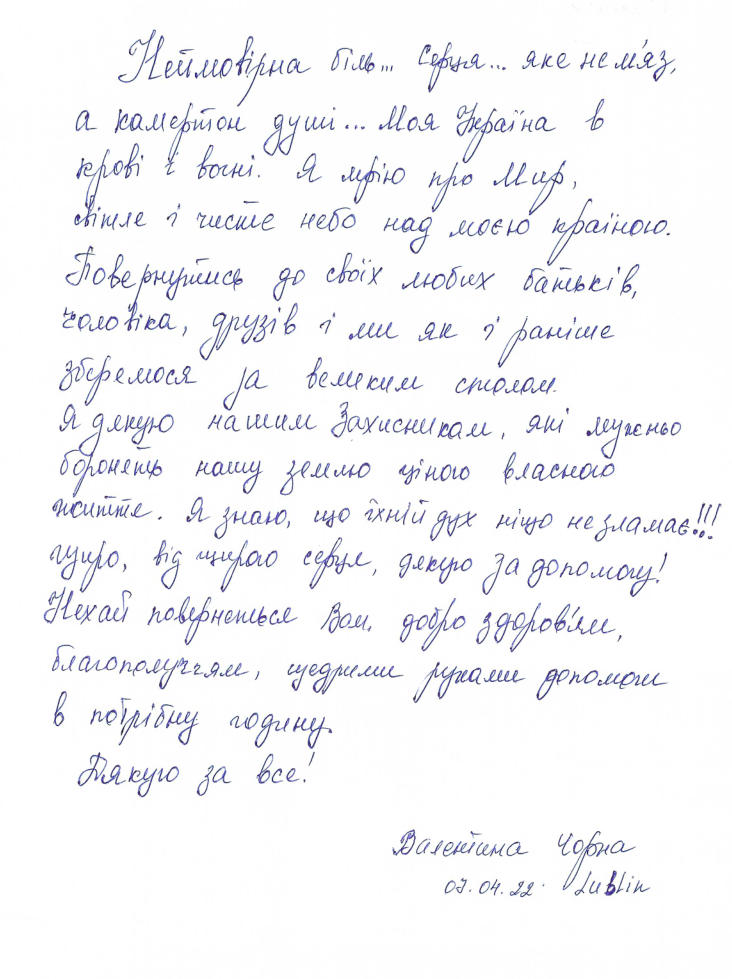 Неймовірна біль... Серця... яке не м'яз,
а камертон душі... Моя Україна в
крові і вогні. Я мрію про Мир,
світле і чисте небо над моєю країною.
Повернутись до своїх любих батьків,
чоловіка, друзів і ми як і раніше
зберемося за великим столом.
Я дякую нашим Захисникам, які мужньо
боронять нашу землю ціною власного
життя. Я знаю, що їхній дух ніщо не зламає!!!
Щиро, від щирого серця, дякую за допомогу!
Нехай повернеться Вам добро здоров'ям,
благополуччям, щедрими руками допомоги
в потрібну годину.
Дякую за все!
Валентина Чорна
07.04.22. Lublin